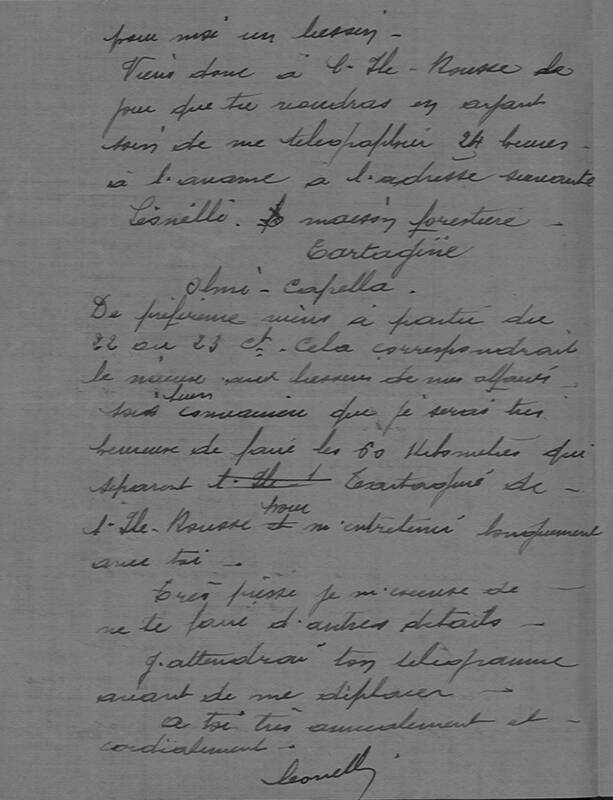 pour moi un besoin -
Viens donc à l'Ile-Rousse le
jour que tu voudras en ayant
soin de me télégraphier 24 heures -
à l'avance à l'adresse suivante
Léonelli. maison forestière -
Tartagine
Olmi-Capella.
De préférence viens à partir du
22 ou 23 ct. Cela correspondrait
le mieux aux besoins de mes affaires
sois bien convaincu que je serais très
heureux de faire les 60 Kilomètres qui
séparent l'Ile Tartagine de -
l'Ile-Rousse pour m'entretenir longuement
avec toi -
Très pressé je m'excuse de -
ne te faire d'autres détails -
J'attendrai ton télégramme
avant de me déplacer -
A toi très amicalement et -
cordialement -
Leonelli